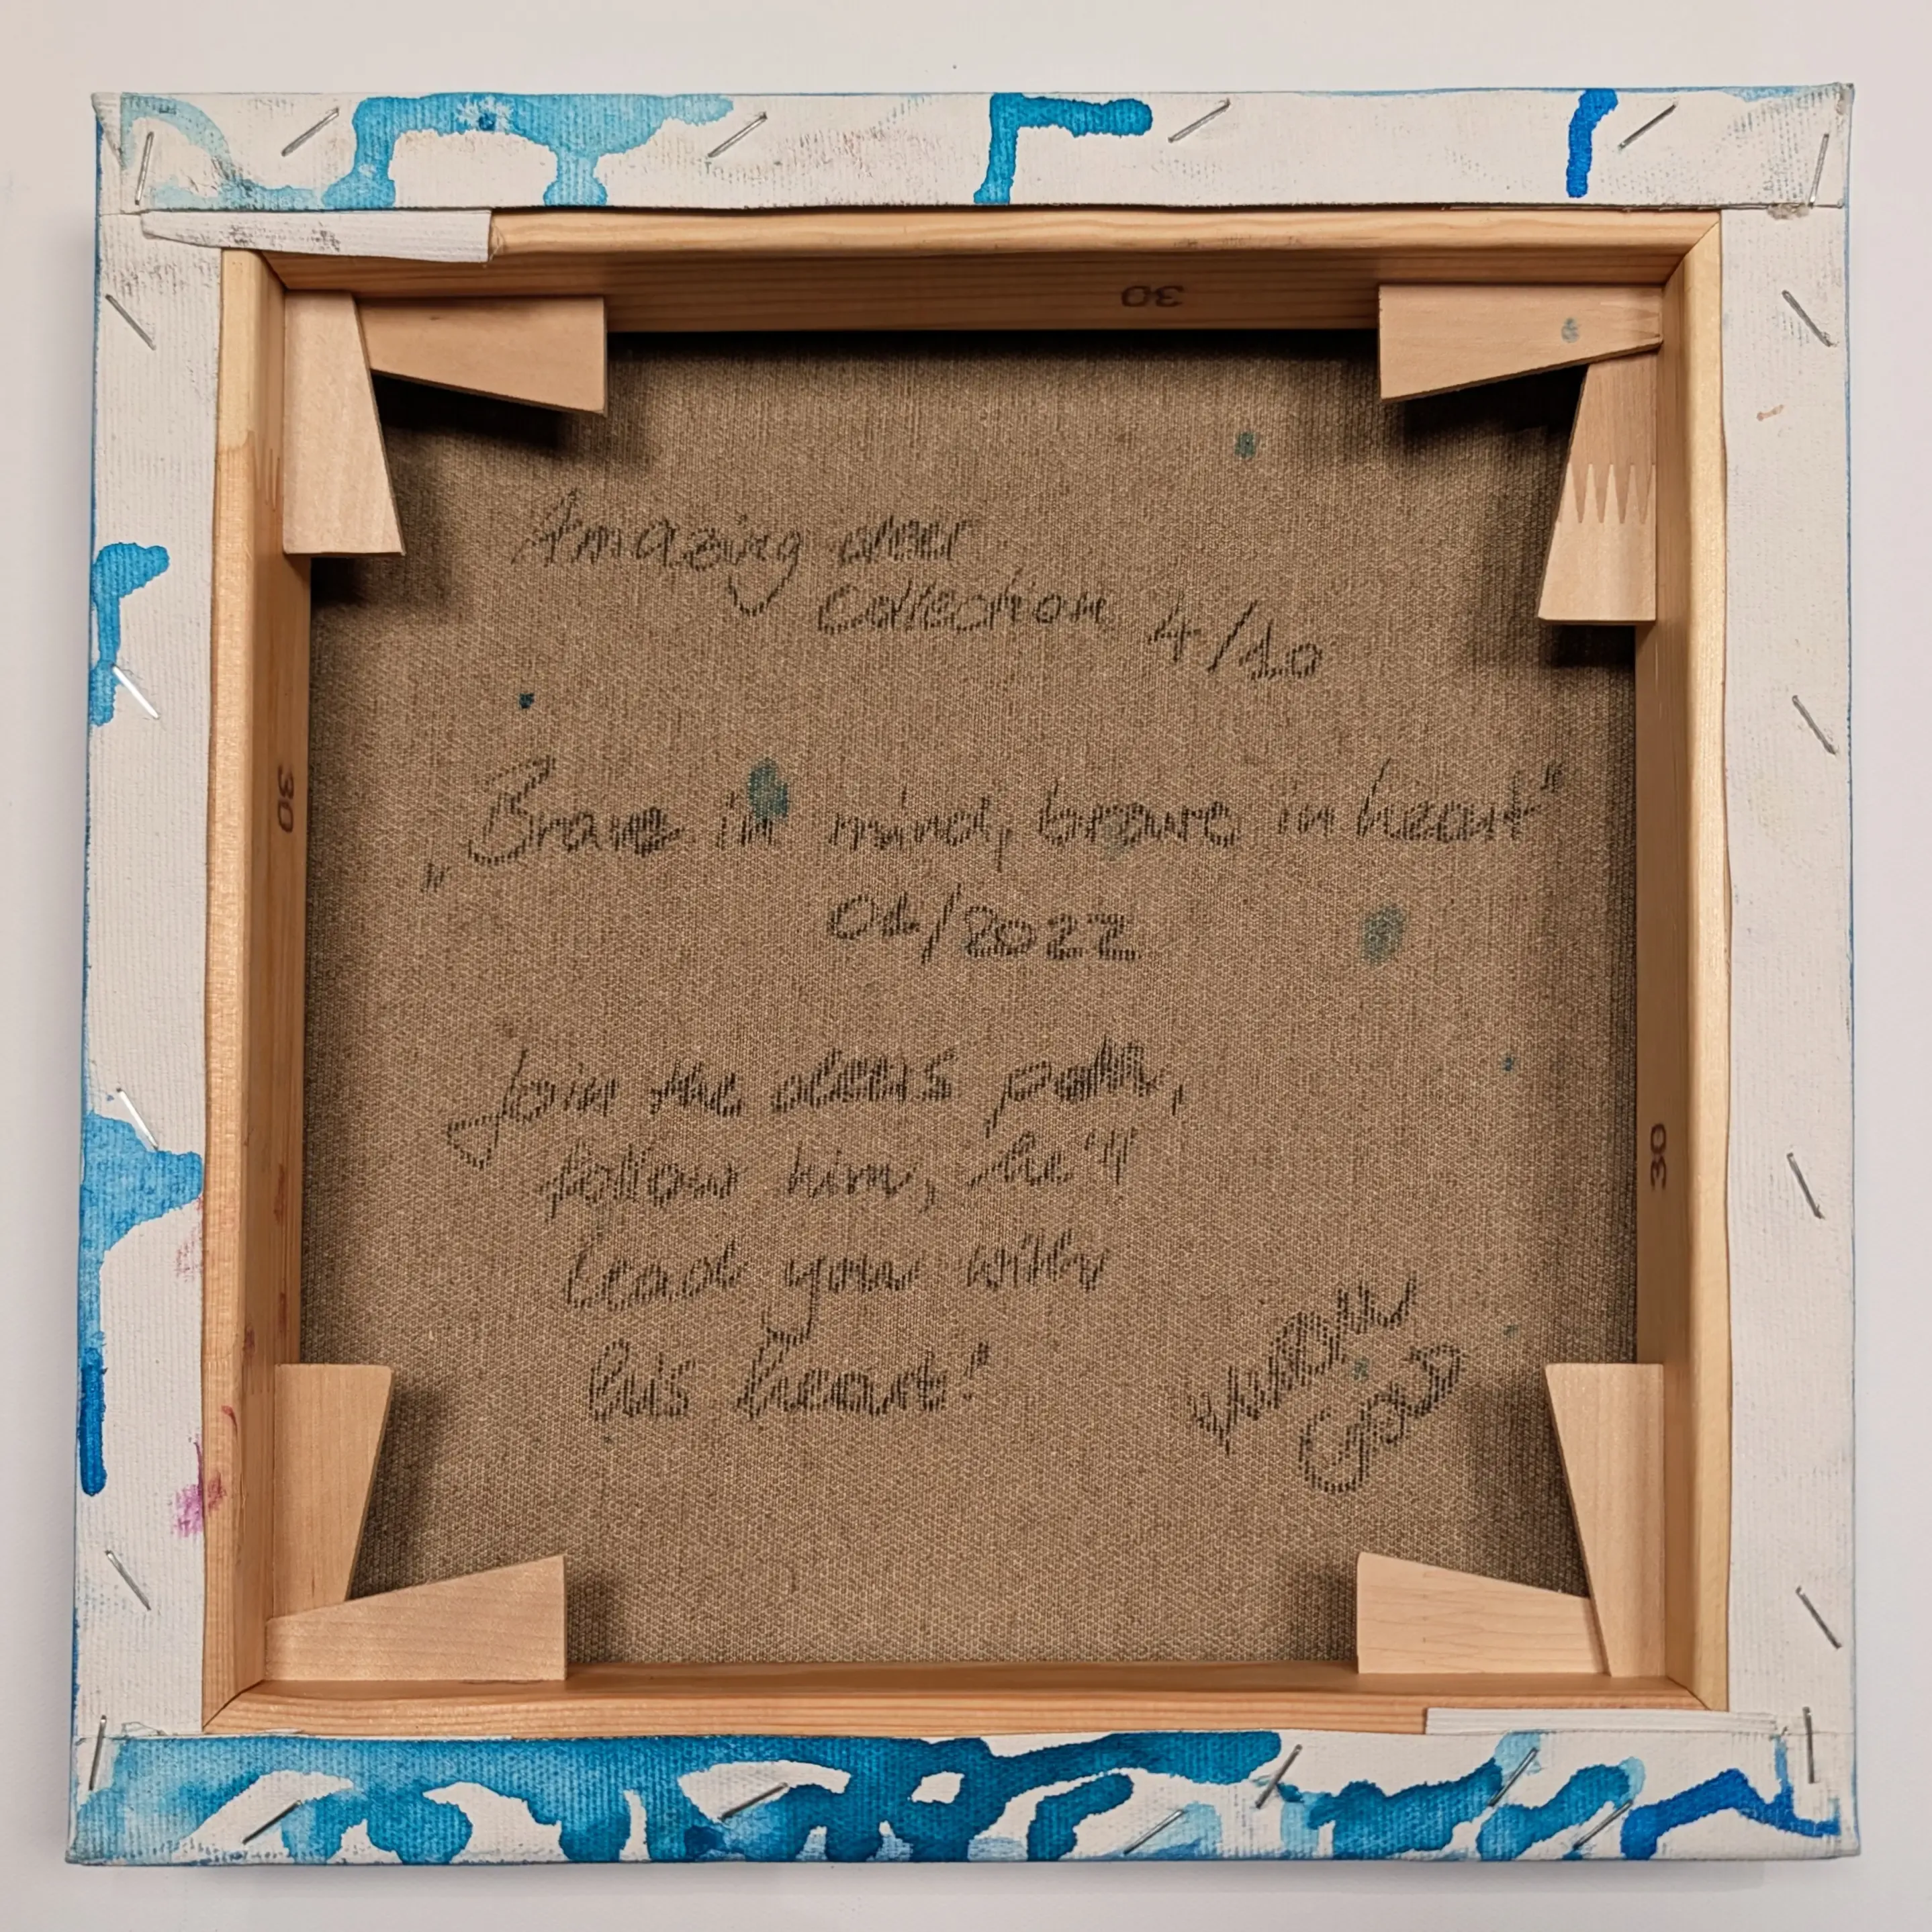 30
Amazing deer
collection 4/10
30
„Brave in mind, brave in heart“
04/2022
Join the deers path,
follow him, he'll
30
lead you with
his heart!